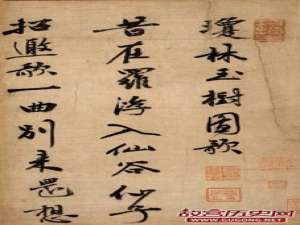 瓊林玉樹圖歌
昔在羅浮入仙谷仙子
招邀歌一曲別来罷想
故宫历史网
WWW.GUGONG.NET